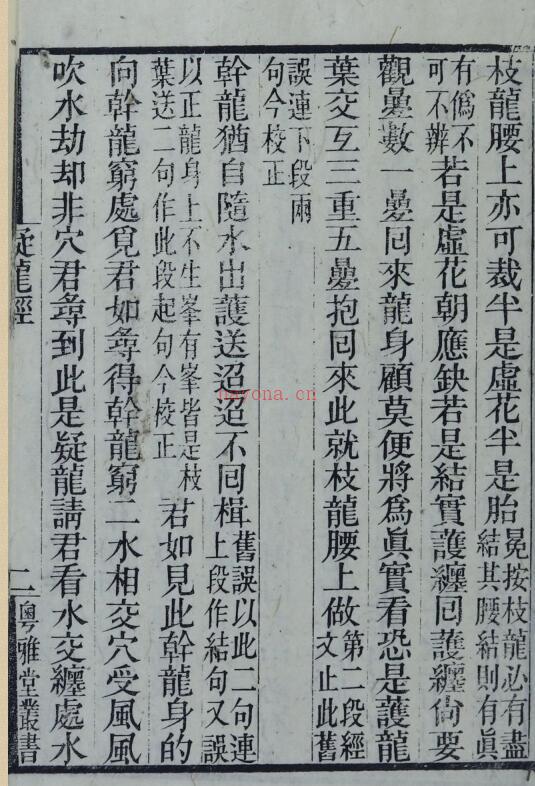 枝龍腰上亦可裁半是虛花半是胎冕按枝龍必有盡
結其腰結則有眞
有僞不
可不辨若是虛花朝應缺若是結實護纏囘護纏尙要
觀曡數一曡囘來龍身顧莫便將爲眞實看恐是護龍
葉交互三重五曡抱囘來此就枝龍腰上做第二段經
文止此舊
誤連下段兩
句今校正
幹龍猶自隨水出護送迢迢不囘楫舊誤以此二句連
上段作結句又誤
以正龍身上不生峯有峯皆是枝
葉送二句作此段起句今校正君如見此幹龍身的
向幹龍窮處覓君如尋得幹龍窮二水相交穴受風風
吹水劫却非穴君尋到此是疑龍請君看水交纏處水
疑龍經 二 粵雅堂叢書
nayona.cn